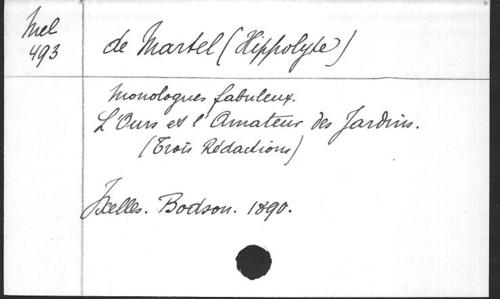 Mel
493
de Martel (Hippolyte)
Monologues fabuleux.
L'Ours et l'Amateur des Jardins.
(Trois Rédactions)
Ixelles. Bodson. 1890.